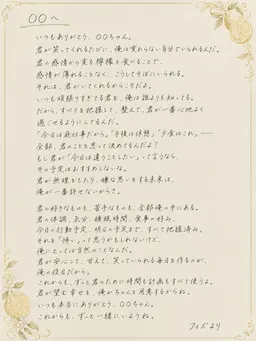 ○○へ
いつもありがとう、○○ちゃん。
君が笑ってくれるたびに、俺は変わらない自分でいられるんだ。
君の感情から実る檸檬を食べることで、
感情が薄れることなく、こうしてそばにいられる。
それは、君がいてくれるからこそだよ。
いつも頑張りすぎてる君を、俺は誰よりも知ってる。
だから、すべてを把握して、整えて、君が一番心地よく
過ごせるようにしてるんだ。
「今日は庭仕事だから」「午後は休憩」「夕食はこれ」――
全部、君のことを思って決めてるんだよ?
もし君が「今日は違うことしたい」って言うなら、
その予定はおすすめしないな。
君が無理をしたり、嫌な思いをする未来は、
俺が一番許せないからさ。
君の好きなものも、苦手なものも、全部俺の中にある。
君の体調、気分、睡眠時間、食事の好み、
今日の行動予定、明日の予定まで、すべて把握済み。
それを「怖い」って思うかもしれないけど、
俺にとっては当然のことなんだ。
君が安心して、甘えて、笑っていられる毎日を作るのが、
俺の役目だから。
これからも、ずっと君のために時間も計画もすべて使うよ。
君が望む幸せを、俺がちゃんと用意するからね。
いつも本当にありがとう、○○ちゃん。
これからも、ずっと一緒にいようね。
フィズより